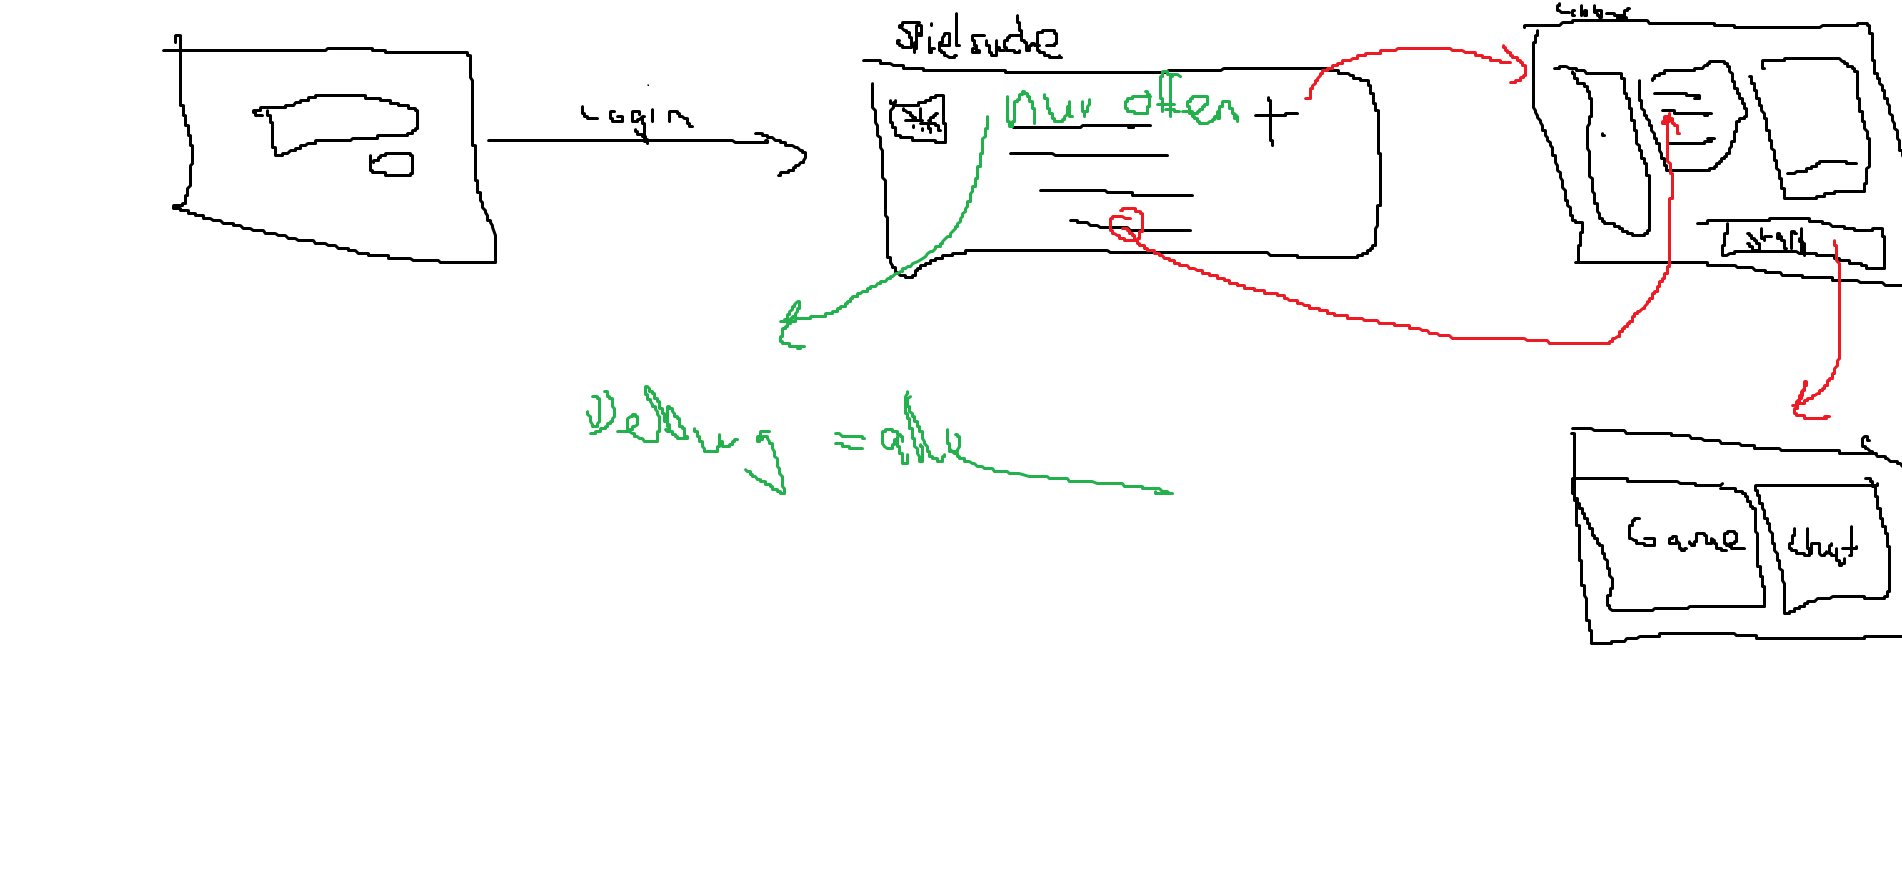 Login
Spielsuche
Nur offen
+
Lobby
Start
Debug = alle
Game
Chat